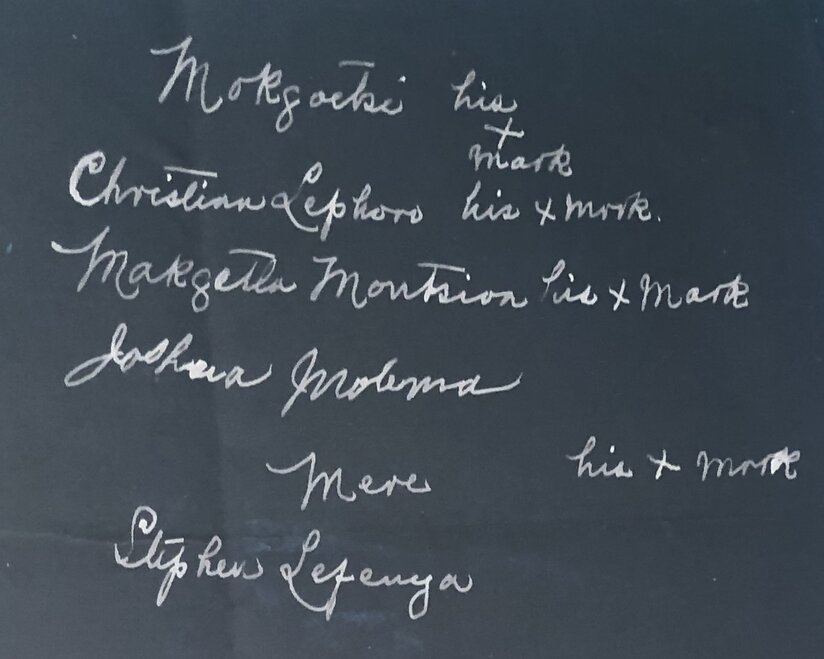 Mokgoetsi his
+
mark
Christian Lephoro his x mark.
Makgetla Montsioa his x Mark
Joshua Molema
Mere his + mark
Stephen Lefenya